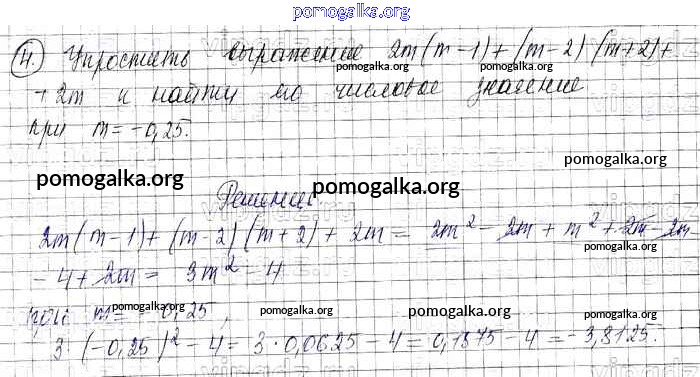 pomogalka.org
4. Упростить выражение 2m(m-1)+(m-2)(m+2)+
pomogalka.org pomogalka.org
+2m и найти его числовое значение
при m=-0,25.
pomogalka.org
pomogalka.org pomogalka.org
Решение
2m(m-1)+(m-2)(m+2)+2m= 2m²-2m+m²+2m-2m-
pomogalka.org
-4+2m= 3m²-4
при m=-0,25,
pomogalka.org pomogalka.org pomogalka.org
3·(-0,25)²-4=3·0,0625-4=0,1875-4=-3,8125.
pomogalka.org pomogalka.org pomogalka.org